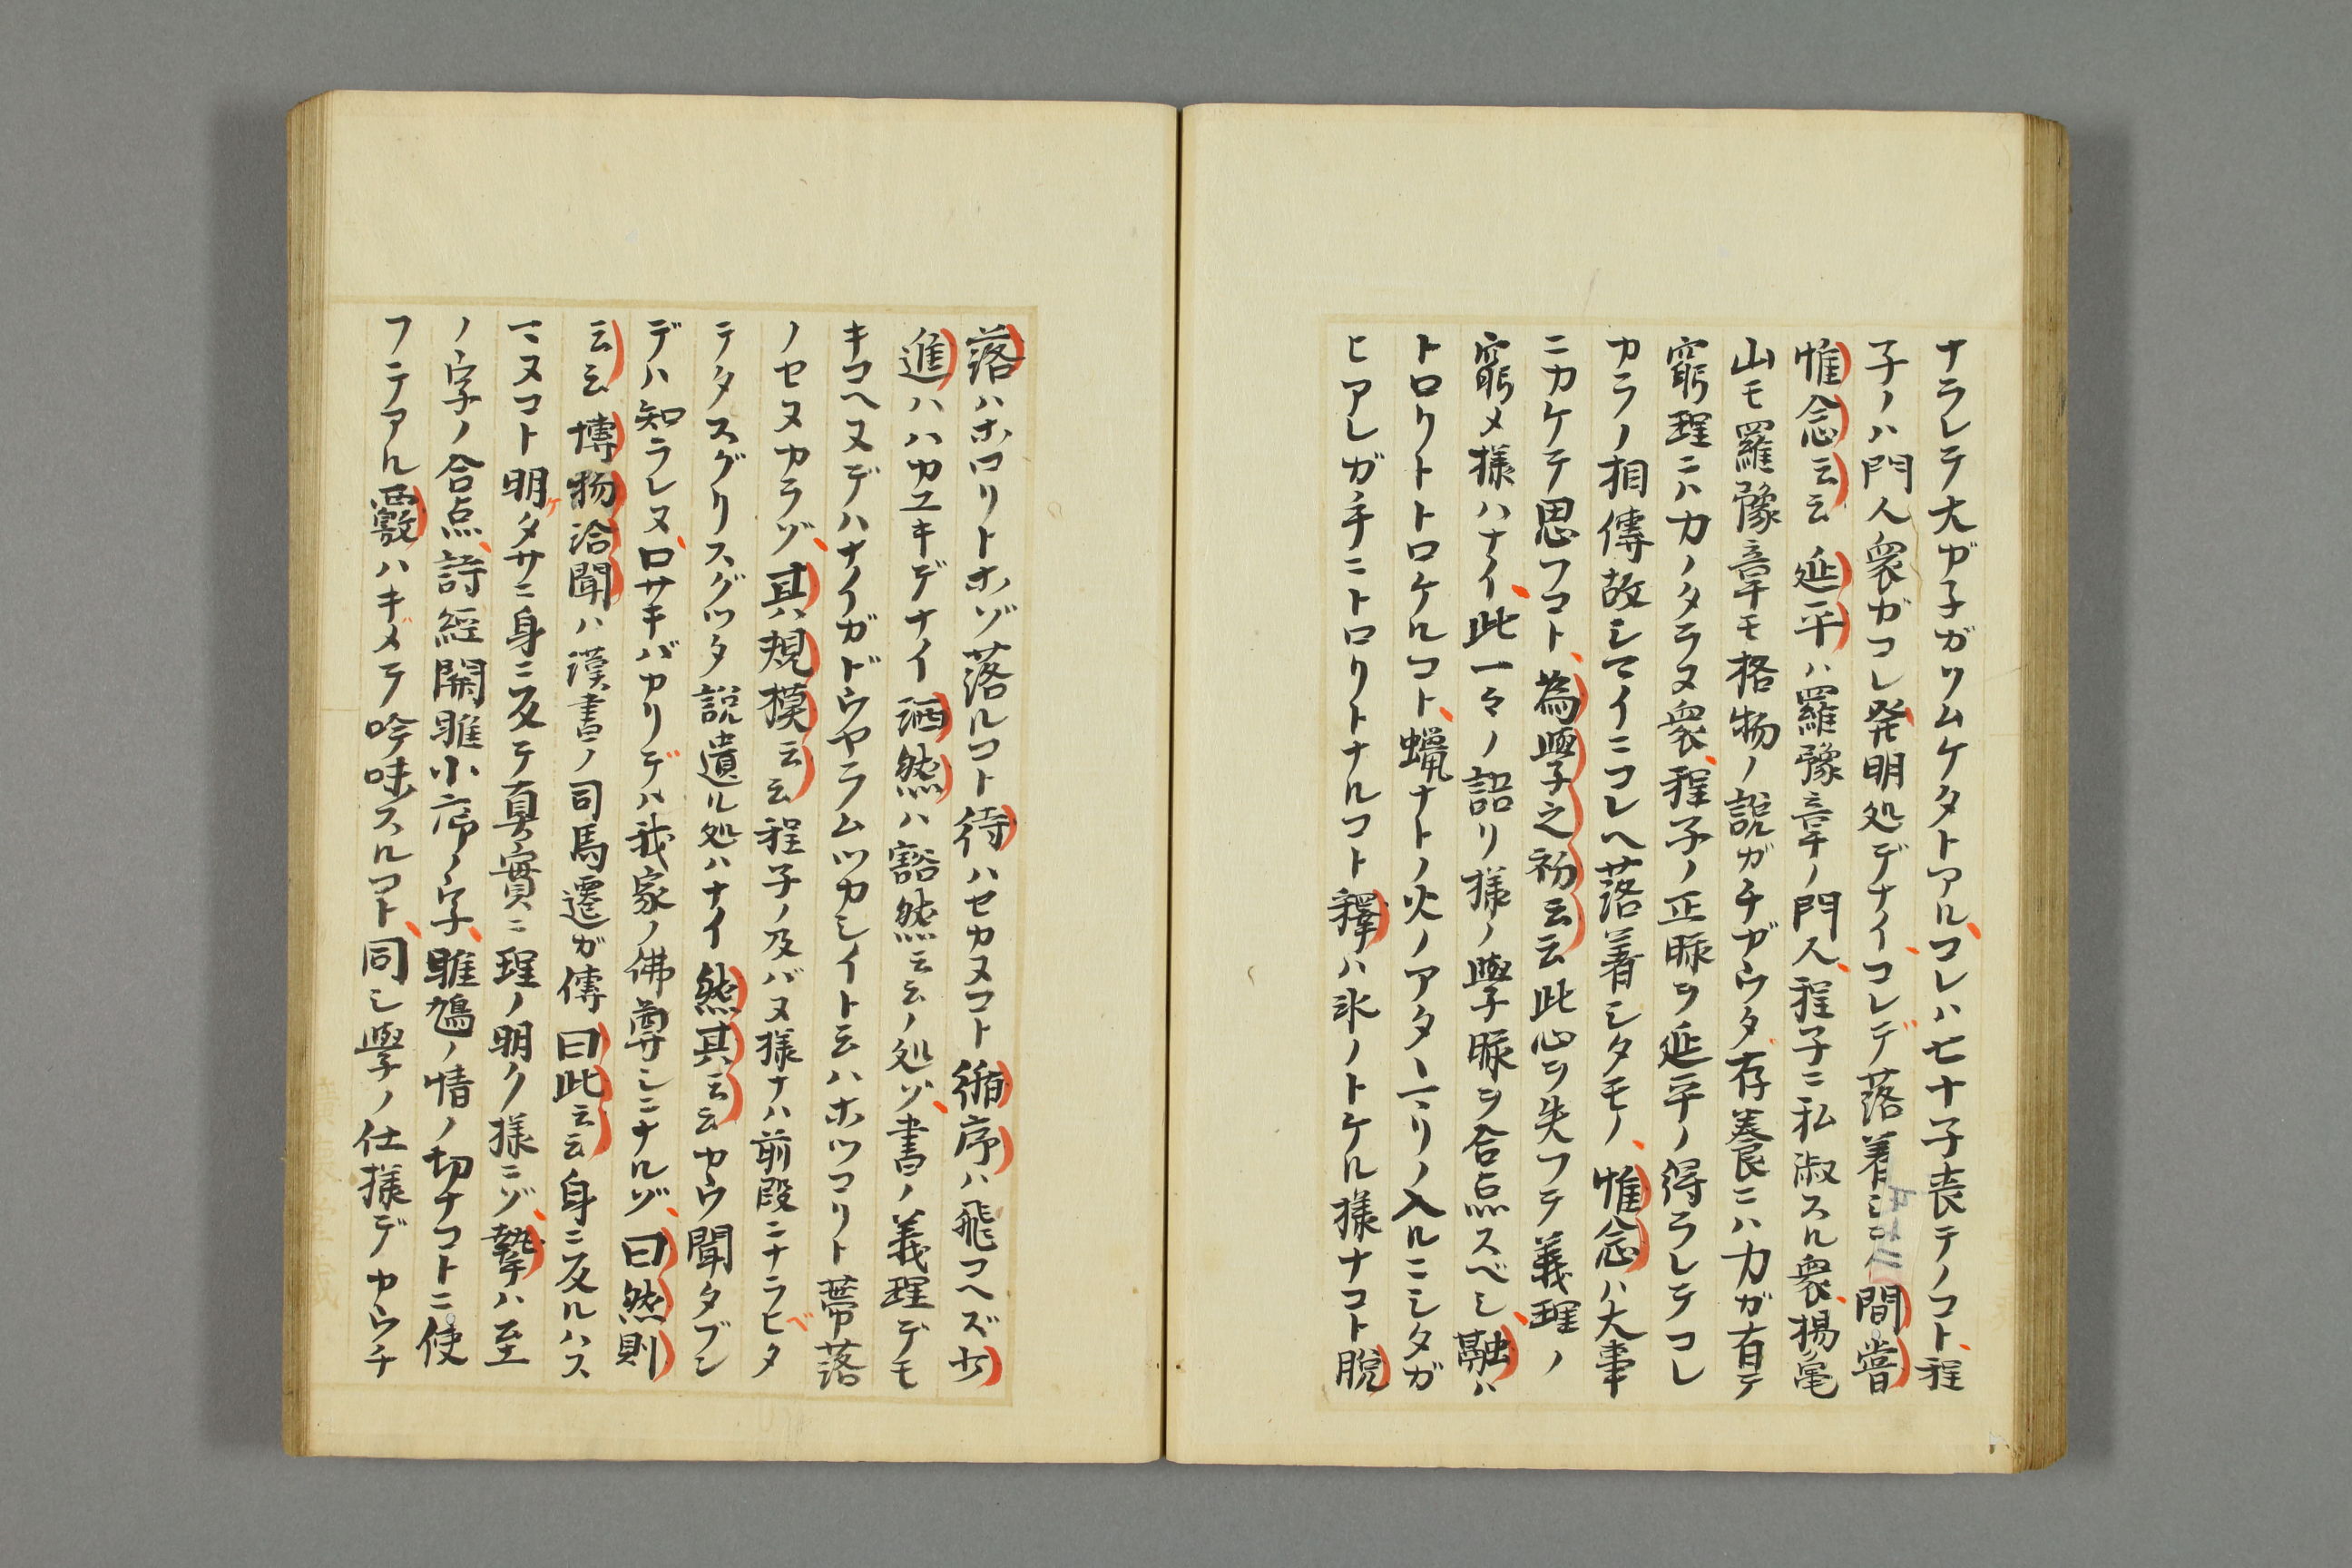 ナラレテ大ガ子ガツムケタトアルコレハ七十子喪テノコト程
子ノハ門人衆ガコレ発明処デナイコレデ落着シ間嘗
惟念云云 延平ハ羅豫章ノ門人程子ニ私淑スル衆楊亀
山モ羅豫章モ格物ノ説ガチガウタ存養ニハ力ガ有テ
窮理ニハ力ノタラヌ衆程子ノ正脉ヲ延平ノ得ラレテコレ
カラノ相傳故シマイニコレヘ落着シタモノ惟念ハ大事
ニカケテ思フコト為學之初云云此心ヲ失フテ義理ノ
窮メ様ハナイ此一々ノ語リ様ノ學脉ヲ合点スベシ融ハ
トロリトトロケルコト蝋ナトノ火ノアタヽマリノ入ルニシタガ
ヒアレガ手ニトロリトナルコト釋ハ氷ノトケル様ナコト脱
落ハホロリトホゾ落ルコト待ハセカヌコト循序ハ飛コヘズ少
進ハハカユキデナイ洒然ハ豁然云云ノ処ゾ書ノ義理デモ
キコヘヌデハナイガドウヤラムツカシイト云ハホツコリト帶落
ノセヌカラゾ其ハ規模云云程子ノ及バヌ様ナハ前段ニナラヒタ
テタスグリスグツタ説遺ル処ハナイ然其云云カウ聞タブン
デハ知ラレヌ口サキバカリデハ我家ノ佛尊シニナルゾ曰然則
云云 博物洽聞ハ漢書ノ司馬遷ガ傳 曰此云云身ニ反ルハス
マヌコト明タサニ身ニ反テ真實ニ理ノ明ク様ニゾ摯ハ至
ノ字ノ合点詩經関雎小序ノ字雎鳩ノ情ノ切ナコトニ使
フテアル覈ハキメテ吟味スルコト同シ學ノ仕様デカウチ